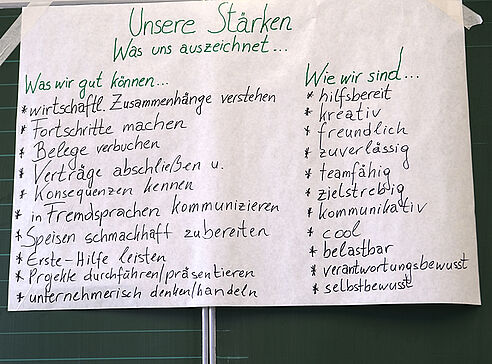 Unsere Stärken
Was uns auszeichnet...
Was wir gut können...
* wirtschaftl. Zusammenhänge verstehen
* Fortschritte machen
* Belege verbuchen
* Verträge abschließen u.
* Konsequenzen kennen
* in Fremdsprachen kommunizieren
* Speisen schmackhaft zubereiten
* Erste-Hilfe leisten
* Projekte durchführen/präsentieren
* unternehmerisch denken/handeln
Wie wir sind...
* hilfsbereit
* kreativ
* freundlich
* zuverlässig
* teamfähig
* zielstrebig
* kommunikativ
* cool
* belastbar
* verantwortungsbewusst
* selbstbewusst